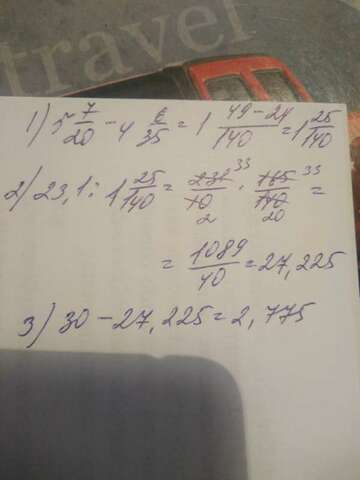 travel
1) 5 7/20 - 4 6/35 = 1 (49-24)/140 = 1 25/140
2) 23,1 : 1 25/140 = 231/10 · 165/140 =
33 2 33 20
= 1089/40 = 27,225
3) 30 - 27,225 = 2,775